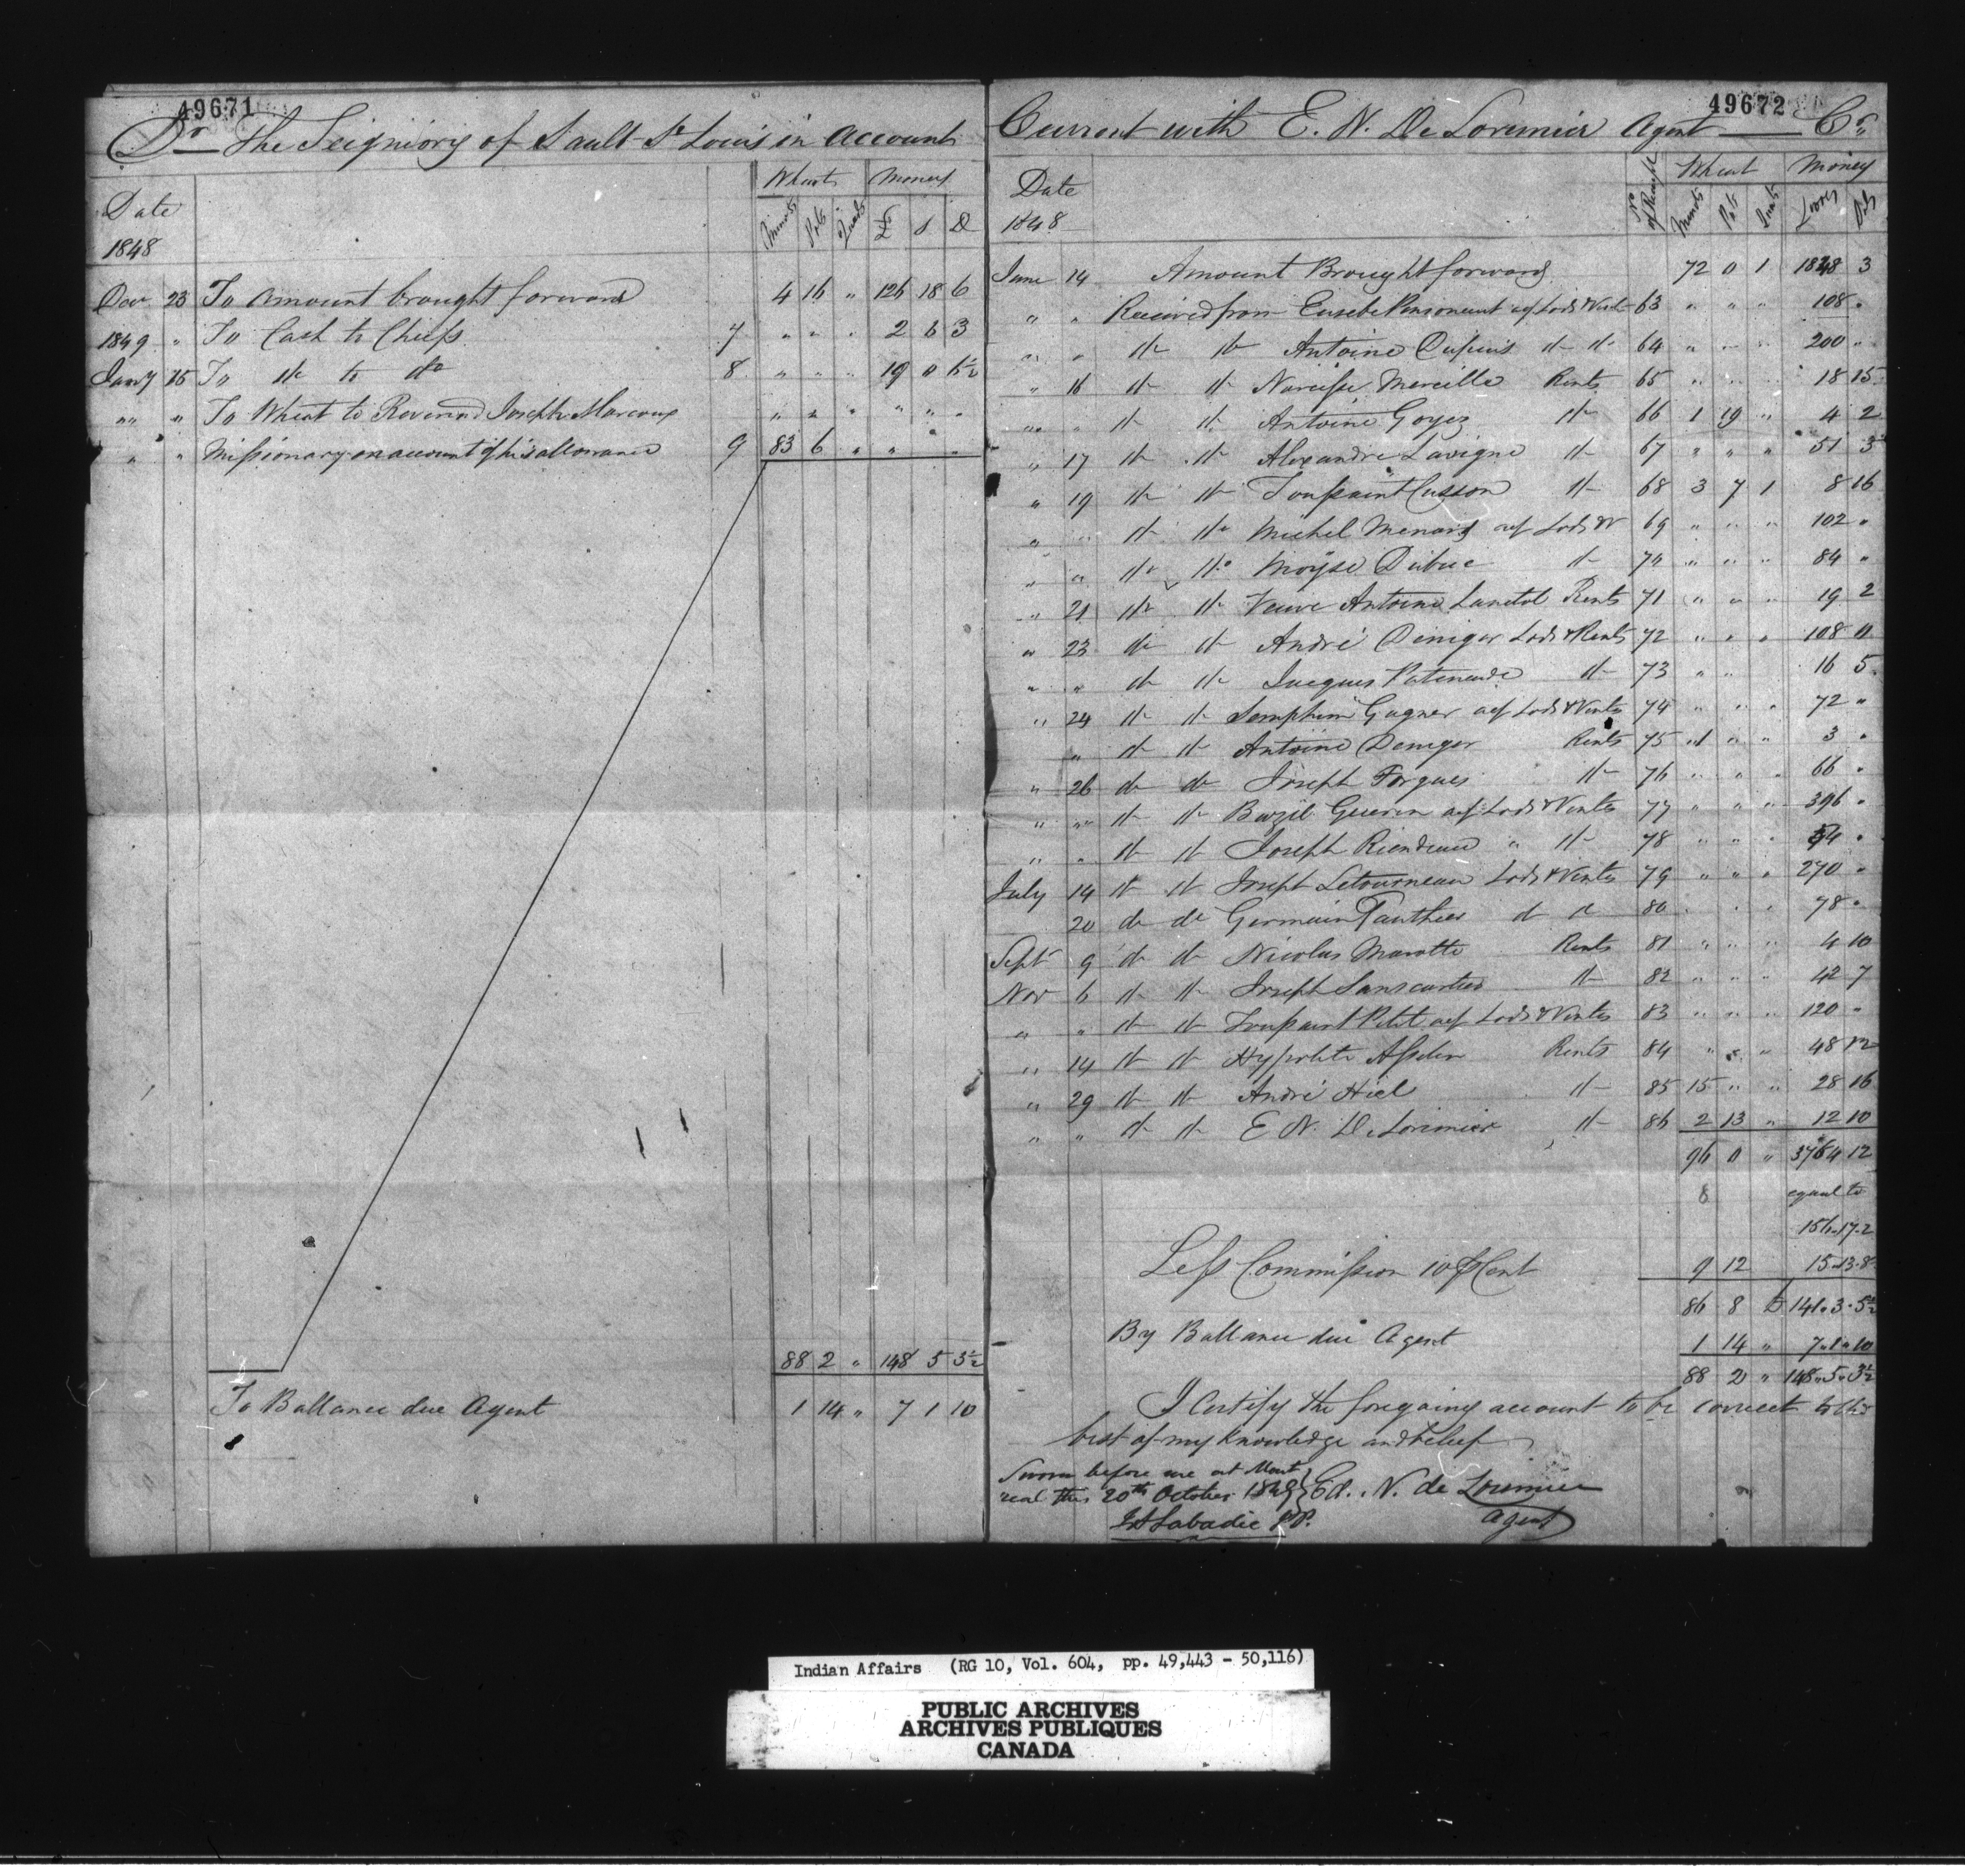 49671
Dr The Seigniory of Sault St Louis in Account
Wheat Money
Date Minots Pots Quarts £ s D
1848
Dec 23 To Amount brought forward 4 16 " 126 18 6
1849 " To Cash to Chiefs 7 " " " 2 6 3
Jany 15 To do to do 8 " " " 19 0 6½
"" " To Wheat to Reverend Joseph Marcoux " " " " " "
" " Missionary on account of his allowance 9 83 6 " " " "
88 2 " 148 5 3½
To Ballance due Agent 1 14 " 7 1 10
49672
Current with E. N. De Lorimier Agent Cr
Date No of Receipt Wheat Money
1848 Minots Pots Quarts Livres Sols
June 14 Amount Brought forward 72 0 1 1828 3
" " Received from Eusebe Personneur a/c Lods & Vents 63 " " " 108 "
" " do do Antoine Dupuis do do 64 " " " 200 "
" 16 do do Narcisse Mercille Rents 65 " " " 18 15
" " do do Antoine Goyer do 66 1 19 " 4 2
" 17 do do Alexandre Lavigne do 67 " " " 51 3
" 19 do do Toussaint Cusson do 68 3 7 1 8 16
" " do do Michel Menard a/c Lods & V 69 " " " 102 "
" " do do Moyse Dubuc do 70 " " " 84 "
" 21 do do Veuve Antoine Lanctot Rents 71 " " " 19 2
" 23 do do André Deniger Lods & Rents 72 " " " 108 11
" " do do Jacques Patenaude do 73 " " 16 5
" 24 do do Seraphin Gagner a/c Lods & Vents 74 " " " 72 "
" do do Antoine Deniger Rents 75 " " " 3 "
" 26 do do Joseph Forgues do 76 " " " 66 "
" " do do Bazil Guerin a/c Lods & Ventes 77 " " " 396 "
" " do do Joseph Riendeau " do 78 " " " 54 "
July 14 do do Joseph Letourneau Lods & Ventes 79 " " " 270 "
20 do do Germain Gauthier do do 80 " " " 78 "
Sept 9 do do Nicolas Marotte Rents 81 " " " 4 10
Nov 6 do do Joseph Sanscartier do 82 " " " 42 7
" " do do Toussaint Petit a/c Lods & Ventes 83 " " " 120 "
" 14 do do Hypolite Asselin Rents 84 " " " 48 12
" 29 do do André Hiel do 85 15 " " 28 16
" " do do E N. De Lorimier do 86 2 13 " 12 10
96 0 " 3764 12
8 equal to
156.17.2
Less Commission 10 P Cent 9 12 15.13.8
86 8 141.3.5½
By Ballance due Agent 1 14 " 7.1.10
88 2 " 148.5.3½
I Certify the foregoing account to be correct to the
best of my knowledge and belief
Sworn before me at Mont
real this 20th October 1849 } Ed. N. de Lorimier
Labadie JP. Agent
Indian Affairs (RG 10, Vol. 604, pp. 49,443 - 50,116)
PUBLIC ARCHIVES
ARCHIVES PUBLIQUES
CANADA